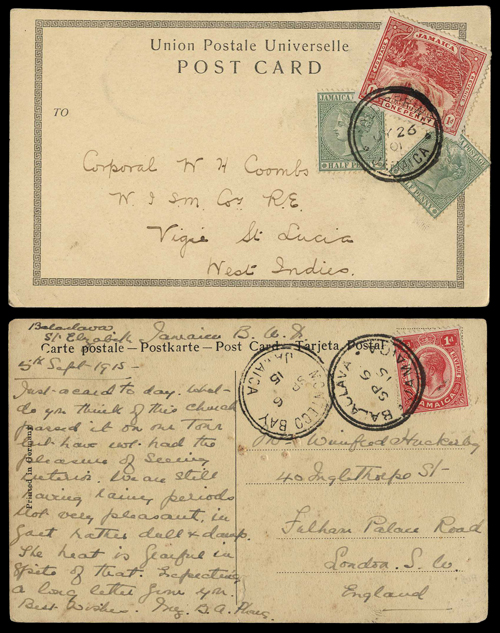 Union Postale Universelle
POST CARD
TO
JAMAICA
ONE PENNY
1d
JAMAICA
HALF PENNY
JY 26
01
JAMAICA
Corporal W H Coombs
W. I S M Coy R.E.
Vigie St Lucia
West Indies.
Balaclava
St. Elizabeth Jamaica B. W. I.
Carte postale — Postkarte — Post Card — Tarjeta Postal
5th Sept. 1915 —
Just a card to day. What
do you think of this church
passed it on our Tour
but have not had the
pleasure of seeing
interior. We are still
having rainy periods
not very pleasant, in
fact rather dull & damp.
The heat is fearful in
spite of that. Expecting
a long letter from you.
Best Wishes.
Printed in Germany
MONTEGO BAY
SP 6
15
JAMAICA
BALACLAVA
SP 5
15
JAMAICA
1d
JAMAICA
Winifred Huckerby
40 Inglethorpe St —
Fulham Palace Road
London. S. W.
England